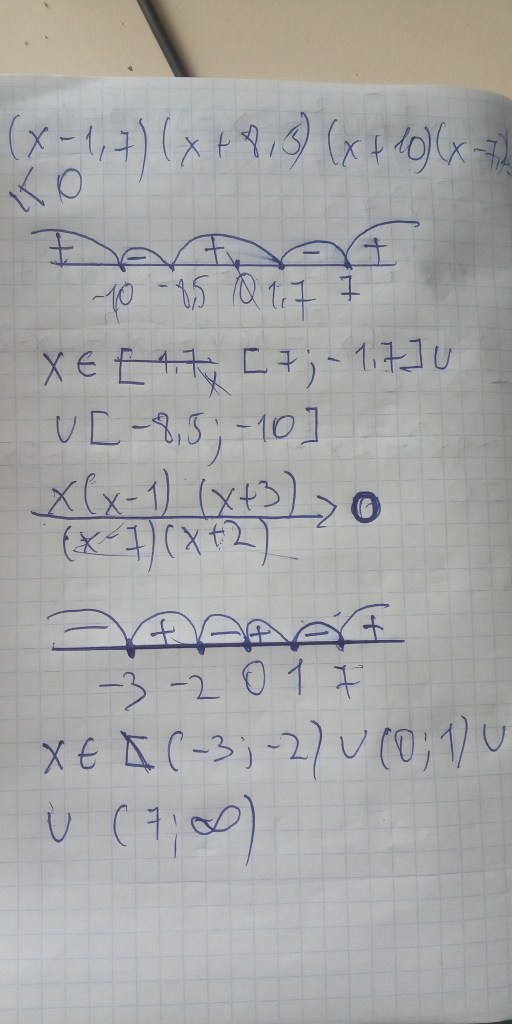 (x-1,7)(x+8,5)(x+10)(x-7)
< 0
+ - + - +
-10 -8,5 0 1,7 7
x ∈ [7; -1,7] ∪
∪ [-8,5; -10]
x(x-1) (x+3)
(x-7)(x+2) > 0
- + - + - +
-3 -2 0 1 7
x ∈ (-3; -2) ∪ (0; 1) ∪
∪ (7; ∞)